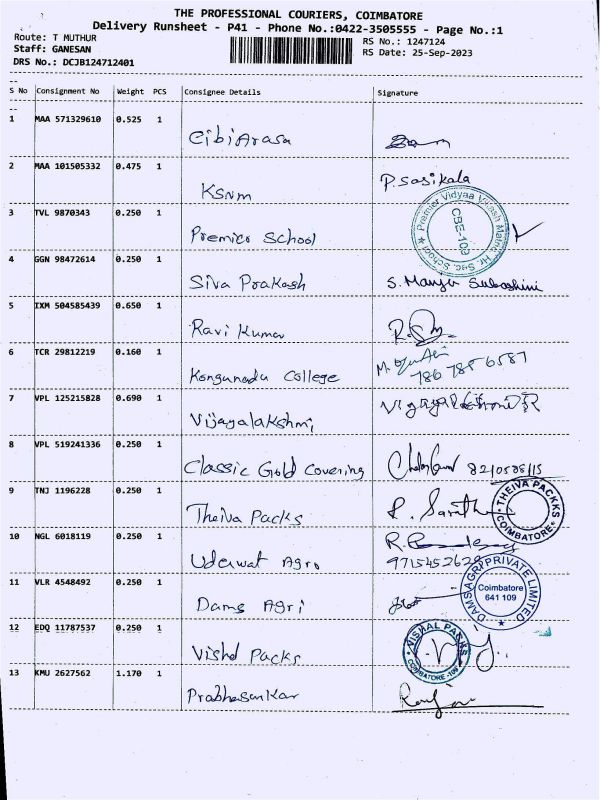 THE PROFESSIONAL COURIERS, COIMBATORE
Delivery Runsheet - P41 - Phone No.:0422-3505555 - Page No.:1
Route: T MUTHUR
RS No.: 1247124
Staff: GANESAN
RS Date: 25-Sep-2023
DRS No.: DCJB124712401
S No Consignment No Weight PCS Consignee Details Signature
1 MAA 571329610 0.525 1 CibiArasa
2 MAA 101505332 0.475 1 KSNM P. Sasikala
3 TVL 9870343 0.250 1 Premier School
Premier Vidyaa Vikash Matric. Hr. Sec. School
CBE-109
4 GGN 98472614 0.250 1 Siva Prakash S. Manju Subashini
5 IXM 504585439 0.650 1 Ravi Kumar
6 TCR 29812219 0.160 1 Kongunadu College M.
786 785 6587
7 VPL 125215828 0.690 1 Vijayalakshmi
8 VPL 519241336 0.250 1 Classic Gold Covering
9 TNJ 1196228 0.250 1 Theiva Packs
THEIVA PACKKS
COIMBATORE
10 NGL 6018119 0.250 1 Uderwat Agro
11 VLR 4548492 0.250 1 Dams Agri
DAMSAGRI PRIVATE LIMITED
Coimbatore
641 109
12 EDQ 11787537 0.250 1 Vishal Packs
VISHAL PACKS
COIMBATORE-109
13 KMU 2627562 1.170 1 Prabhasankar